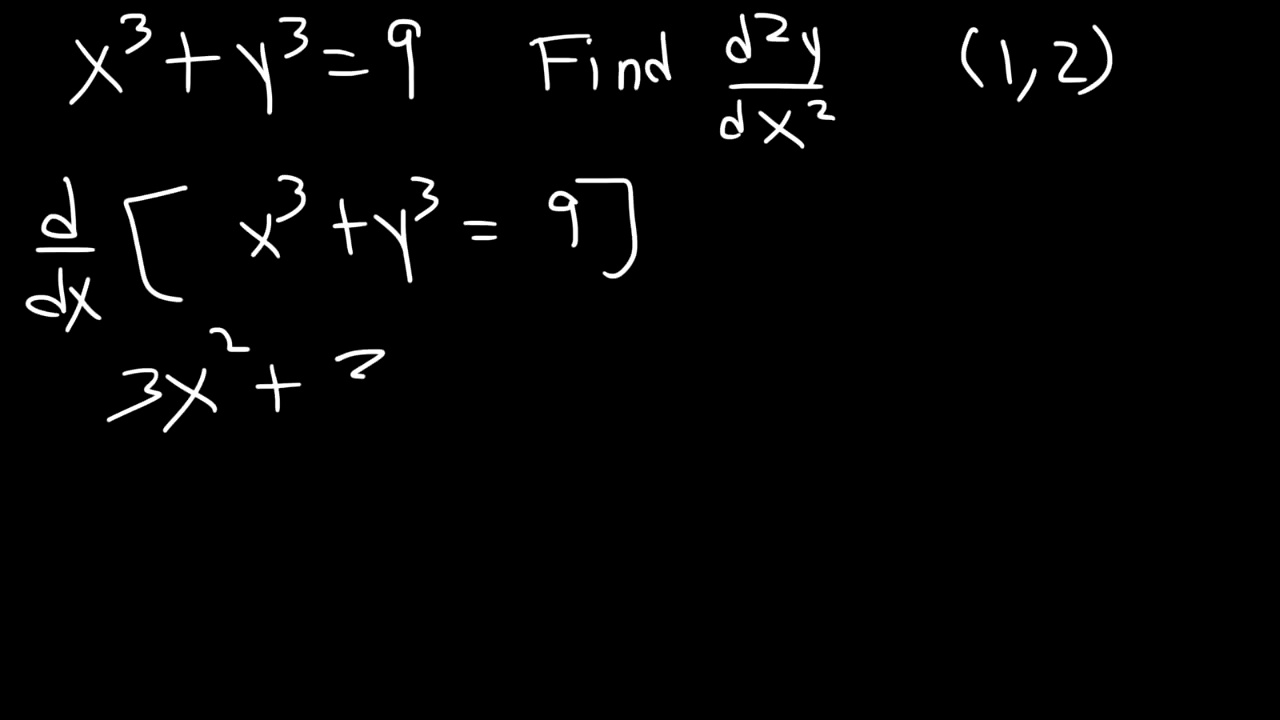 x³+y³=9 Find d²y/dx² (1,2)
d/dx [ x³+y³ = 9]
3x²+